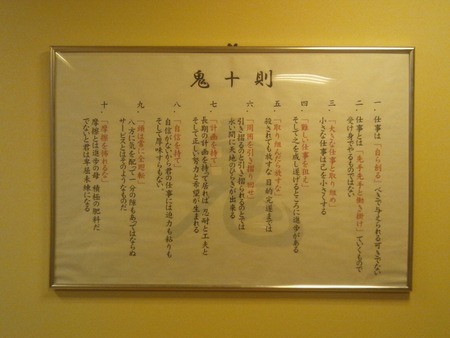 鬼十則
一、仕事は「自ら創る」べきで与えられる可きでない
二、仕事とは「先手先手と働き掛け」ていくもので
受け身でやるものではない
三、「大きな仕事と取り組め」
小さな仕事は己を小さくする
四、「難しい仕事を狙え」
そして之を成し遂げるところに進歩がある
五、「取り組んだら放すな」
殺されても放すな 目的完遂までは
六、「周囲を引き摺り回せ」
引き摺るのと引き摺られるのとでは
永い間に天地のひらきが出来る
七、「計画を持て」
長期の計画を持って居れば、忍耐と工夫と
そして正しい努力と希望が生まれる
八、「自信を持て」
自信がないから君の仕事には迫力も粘りも
そして厚味すらもない
九、「頭は常に全回転」
八方に気を配って一分の隙もあってはならぬ
サービスとはそのようなものだ
十、「摩擦を怖れるな」
摩擦は進歩の母、積極の肥料だ
でないと君は卑屈未練になる